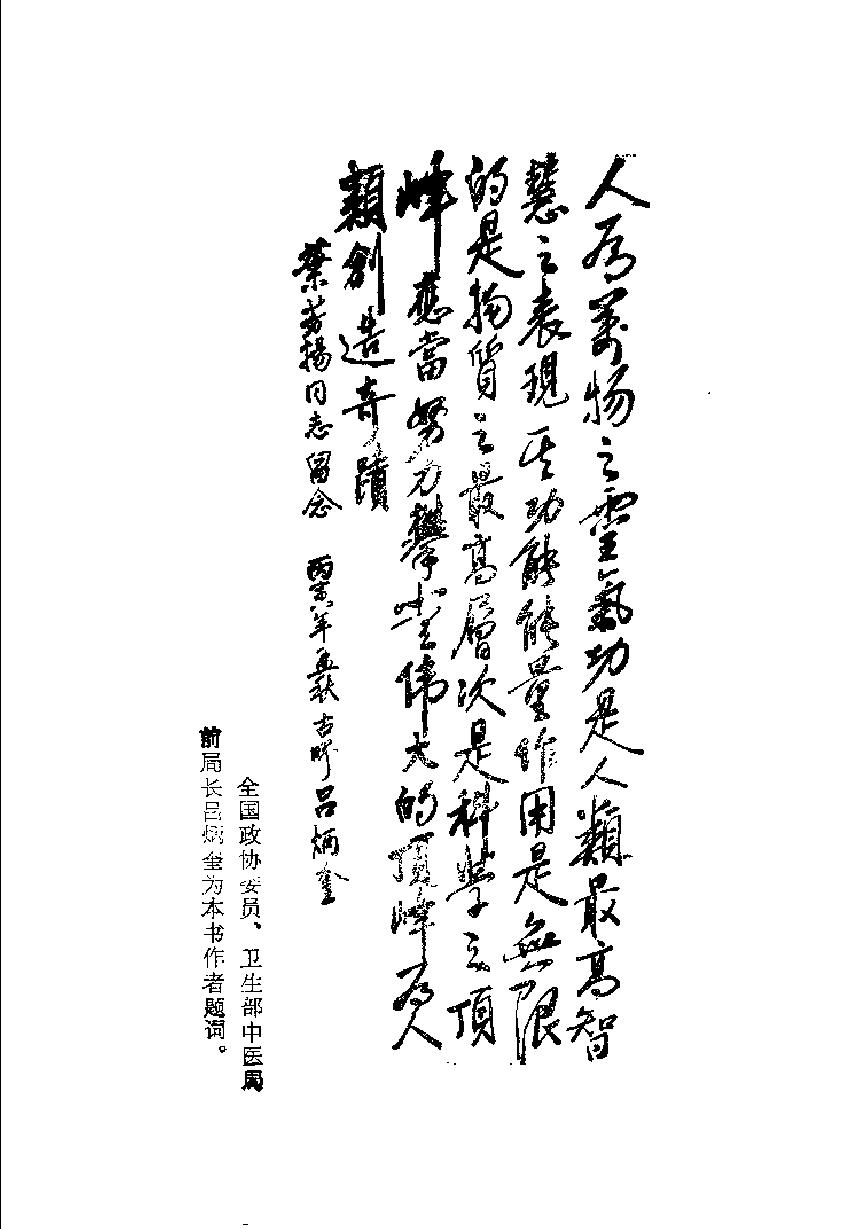 人為萬物之靈氣功是人類最高智
慧之表現其功能能量作用是無限
的是物質之最高層次是科學之頂
峰應當努力攀登偉大的頂峰為人
類創造奇蹟
葉芳揚同志留念 丙寅年 秋 吕炳奎
全国政协委员、卫生部中医局
前局长吕炳奎为本书作者题词。